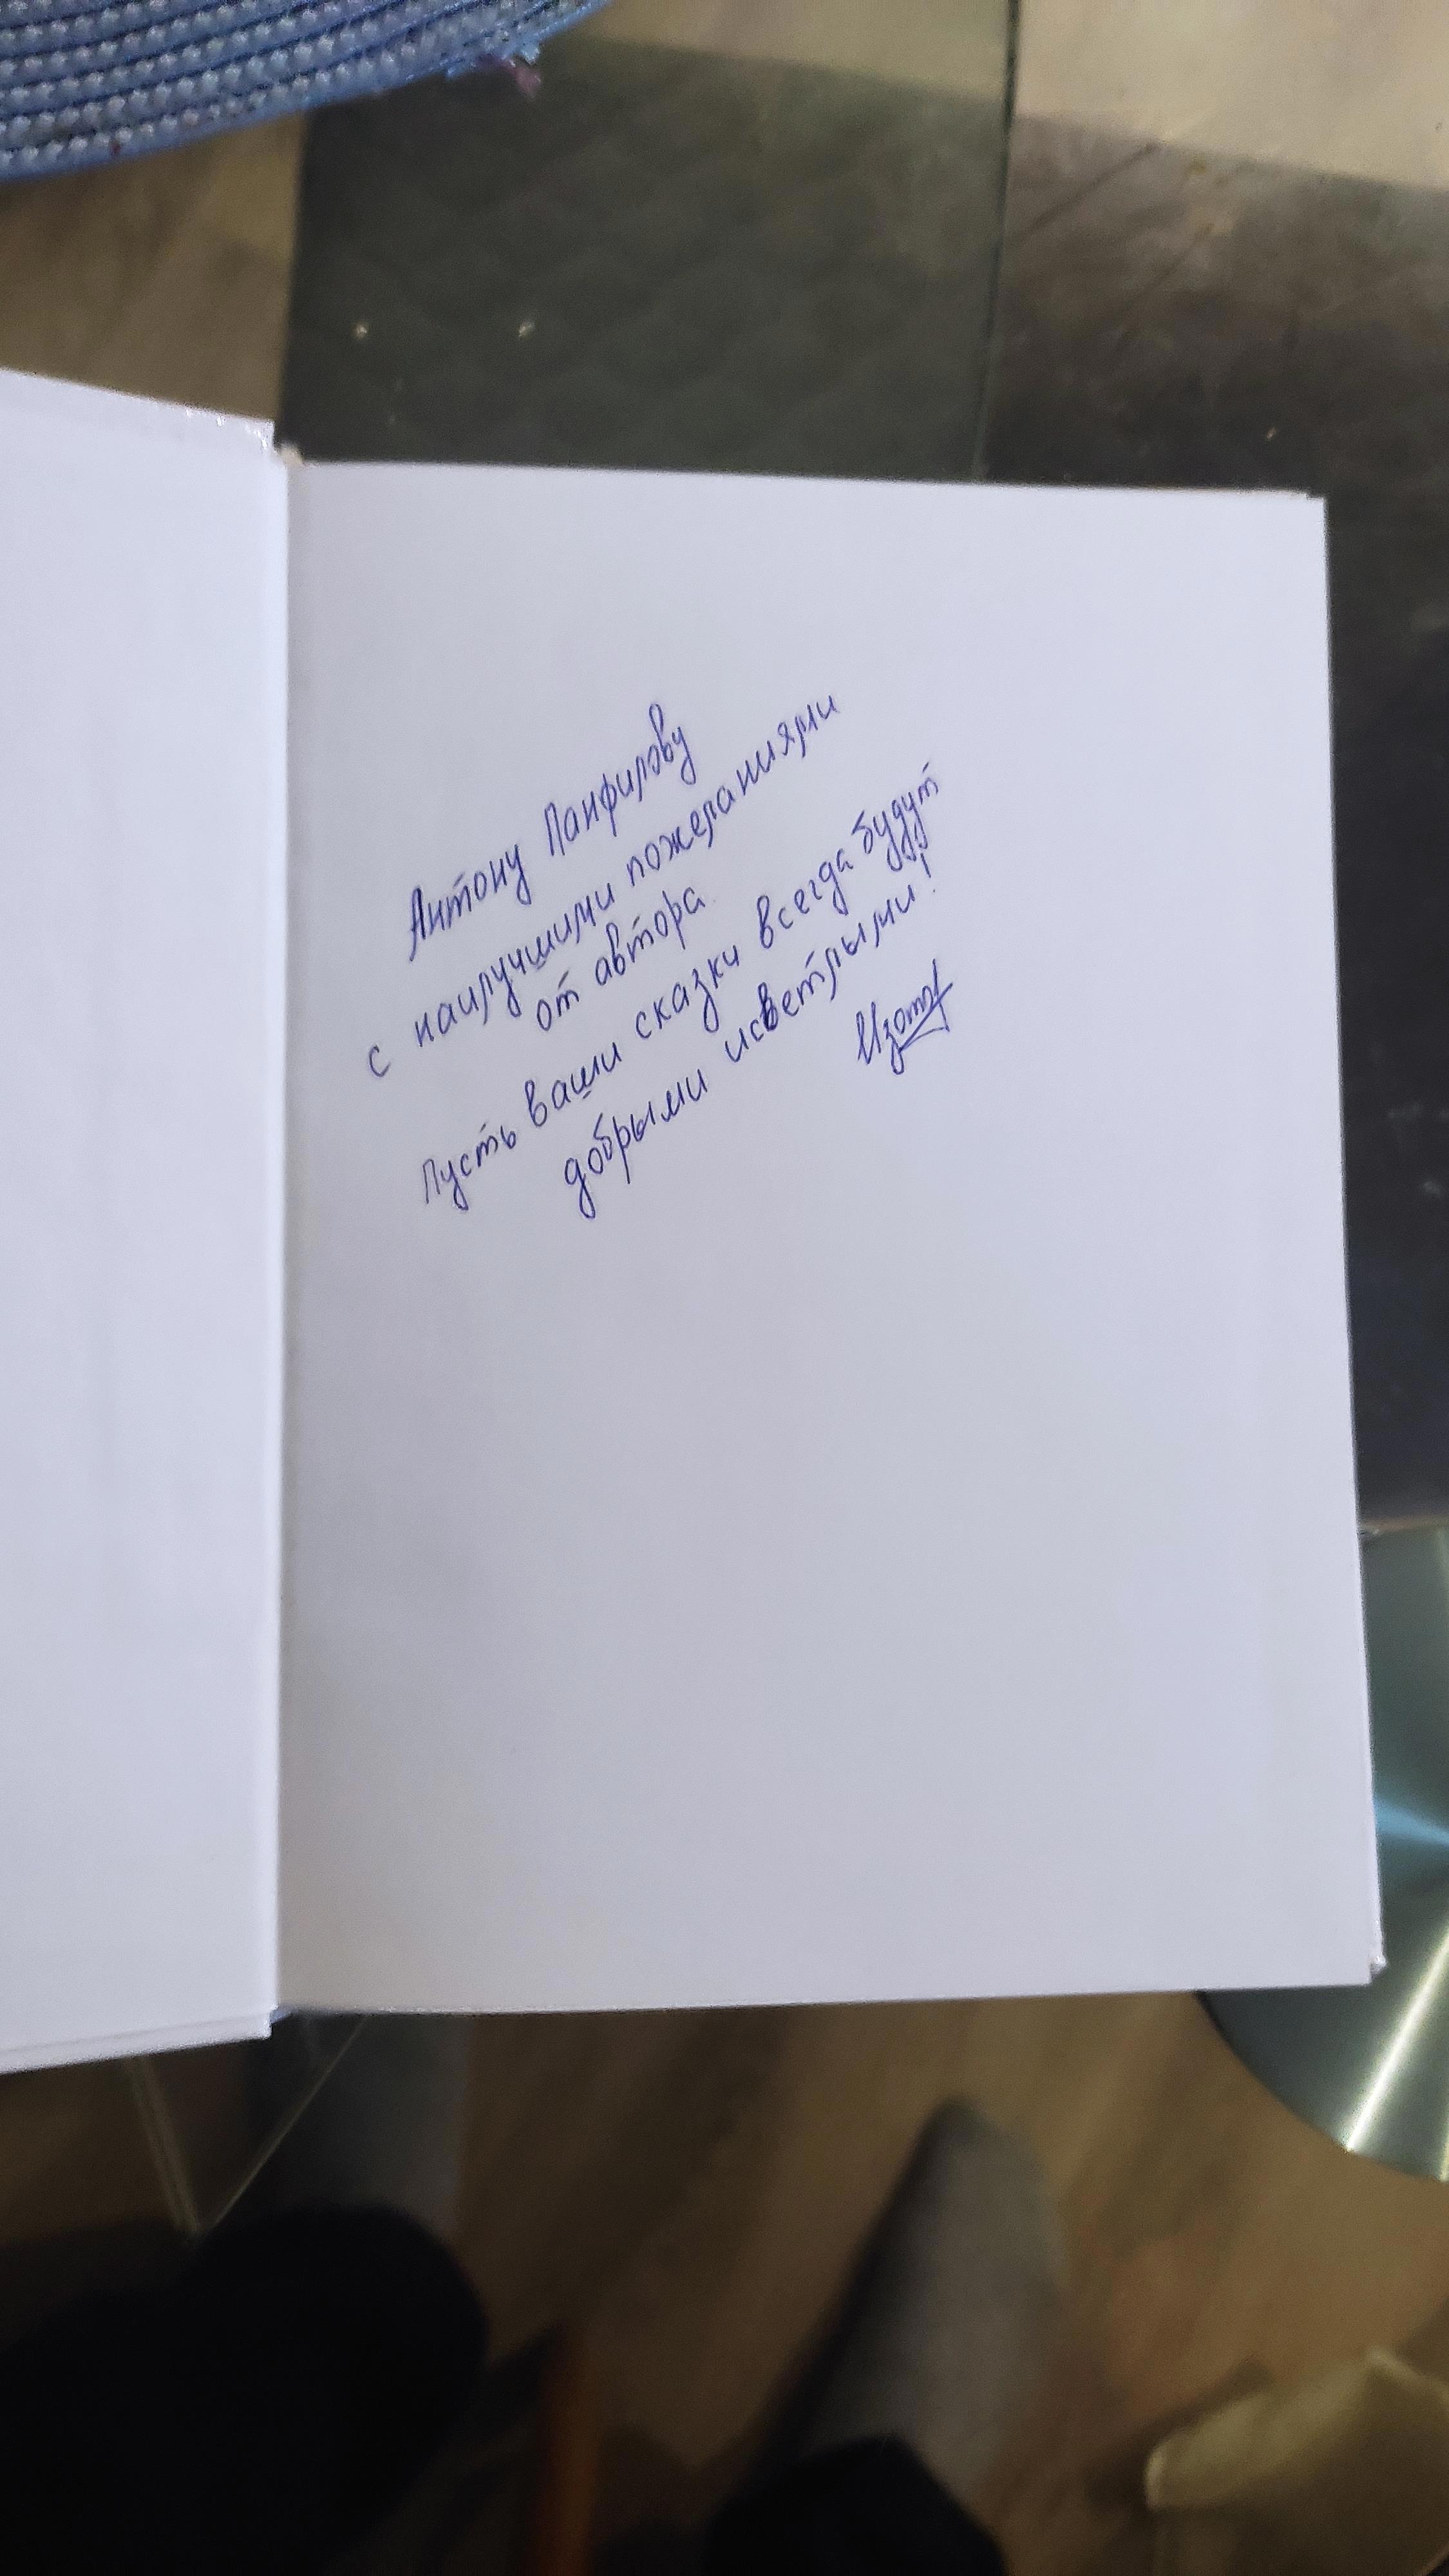 Антону Панфилову
с наилучшими пожеланиями
от автора.
Пусть ваши сказки всегда будут
добрыми и светлыми!